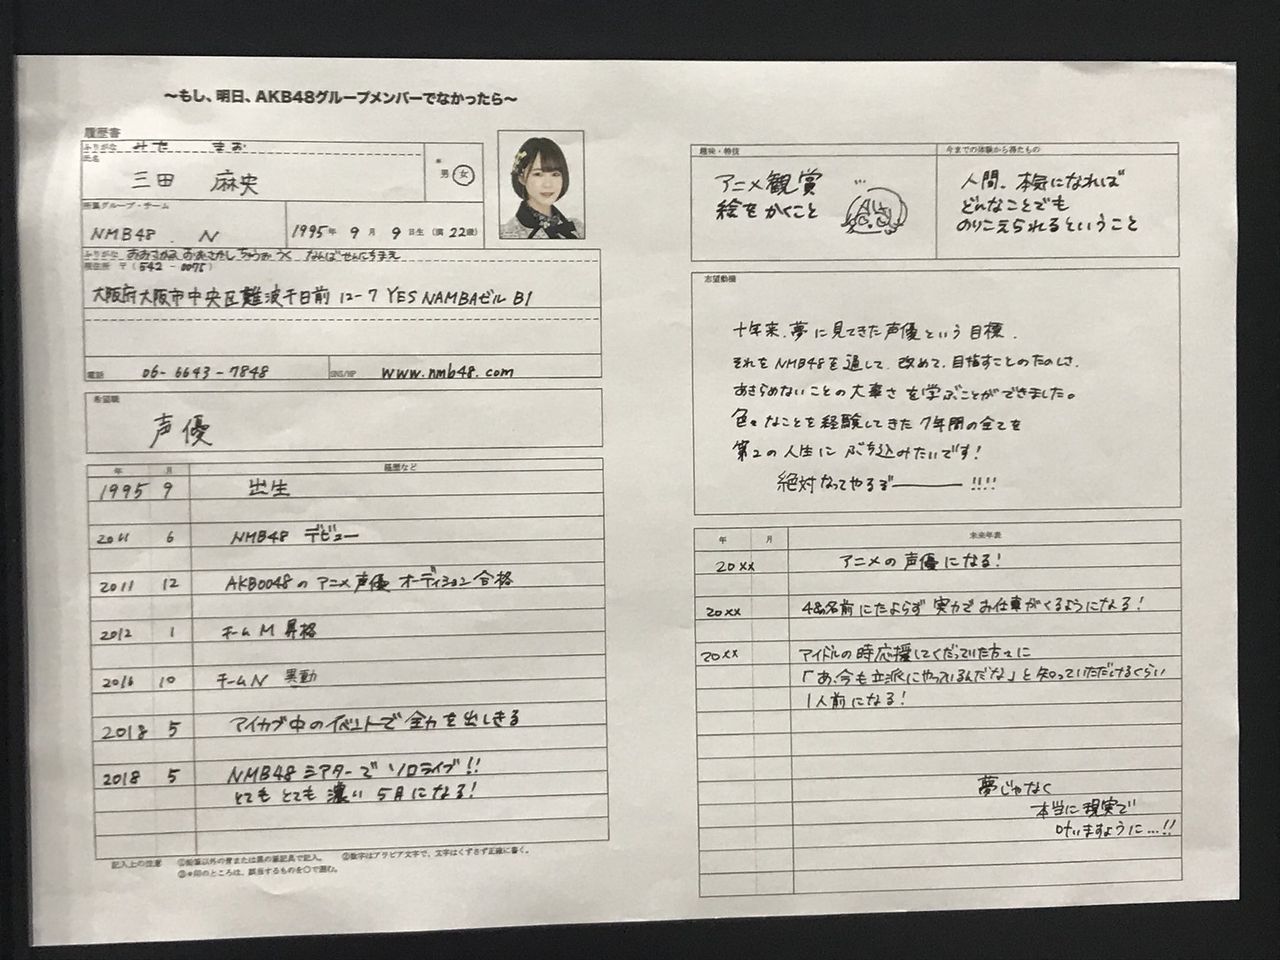 ～もし、明日、AKB48グループメンバーでなかったら～
履歴書
ふりがな みた まお
氏名
三田 麻央
※
男 女
所属グループ・チーム
NMB48 N
1995年 9月 9日生 (満 22歳)
ふりがな おおさかふ おおさかし ちゅうおうく なんばせんにちまえ
現住所 〒(542-0075)
大阪府大阪市中央区難波千日前 12-7 YES NAMBAビル B1
電話 06-6643-7848
SNS/HP www.nmb48.com
希望職
声優
年 月 履歴など
1995 9 出生
2011 6 NMB48 デビュー
2011 12 AKB0048の アニメ声優 オーディション合格
2012 1 チームM 昇格
2016 10 チームN 異動
2018 5 アイカブ中のイベントで 全力を出しきる
2018 5 NMB48シアターで ソロライブ!!
とても とても 濃い 5月になる!
記入上の注意 ①鉛筆以外の青または黒の筆記具で記入。 ②数字はアラビア文字で、文字はくずさず正確に書く。
③※印のところは、該当するものを○で囲む。
趣味・特技
アニメ観賞
絵をかくこと
今までの体験から得たもの
人間、本気になれば
どんなことでも
のりこえられるということ
志望動機
十年来、夢に見てきた声優という目標。
それをNMB48を通して、改めて、目指すことのたのしさ、
あきらめないことの大事さを学ぶことができました。
色々なことを経験してきた7年間の全てを
第2の人生に ぶち込みたいです!
絶対なってやるぞー!!!!
年 月 未来年表
20xx アニメの声優になる!
20xx 48の名前にたよらず 実力でお仕事がくるようになる!
20xx アイドルの時応援してくださっていた方々に
「あ、今も立派にやっているんだな」と知っていただけるくらい
1人前になる!
夢じゃなく
本当に現実で
叶いますように…!!